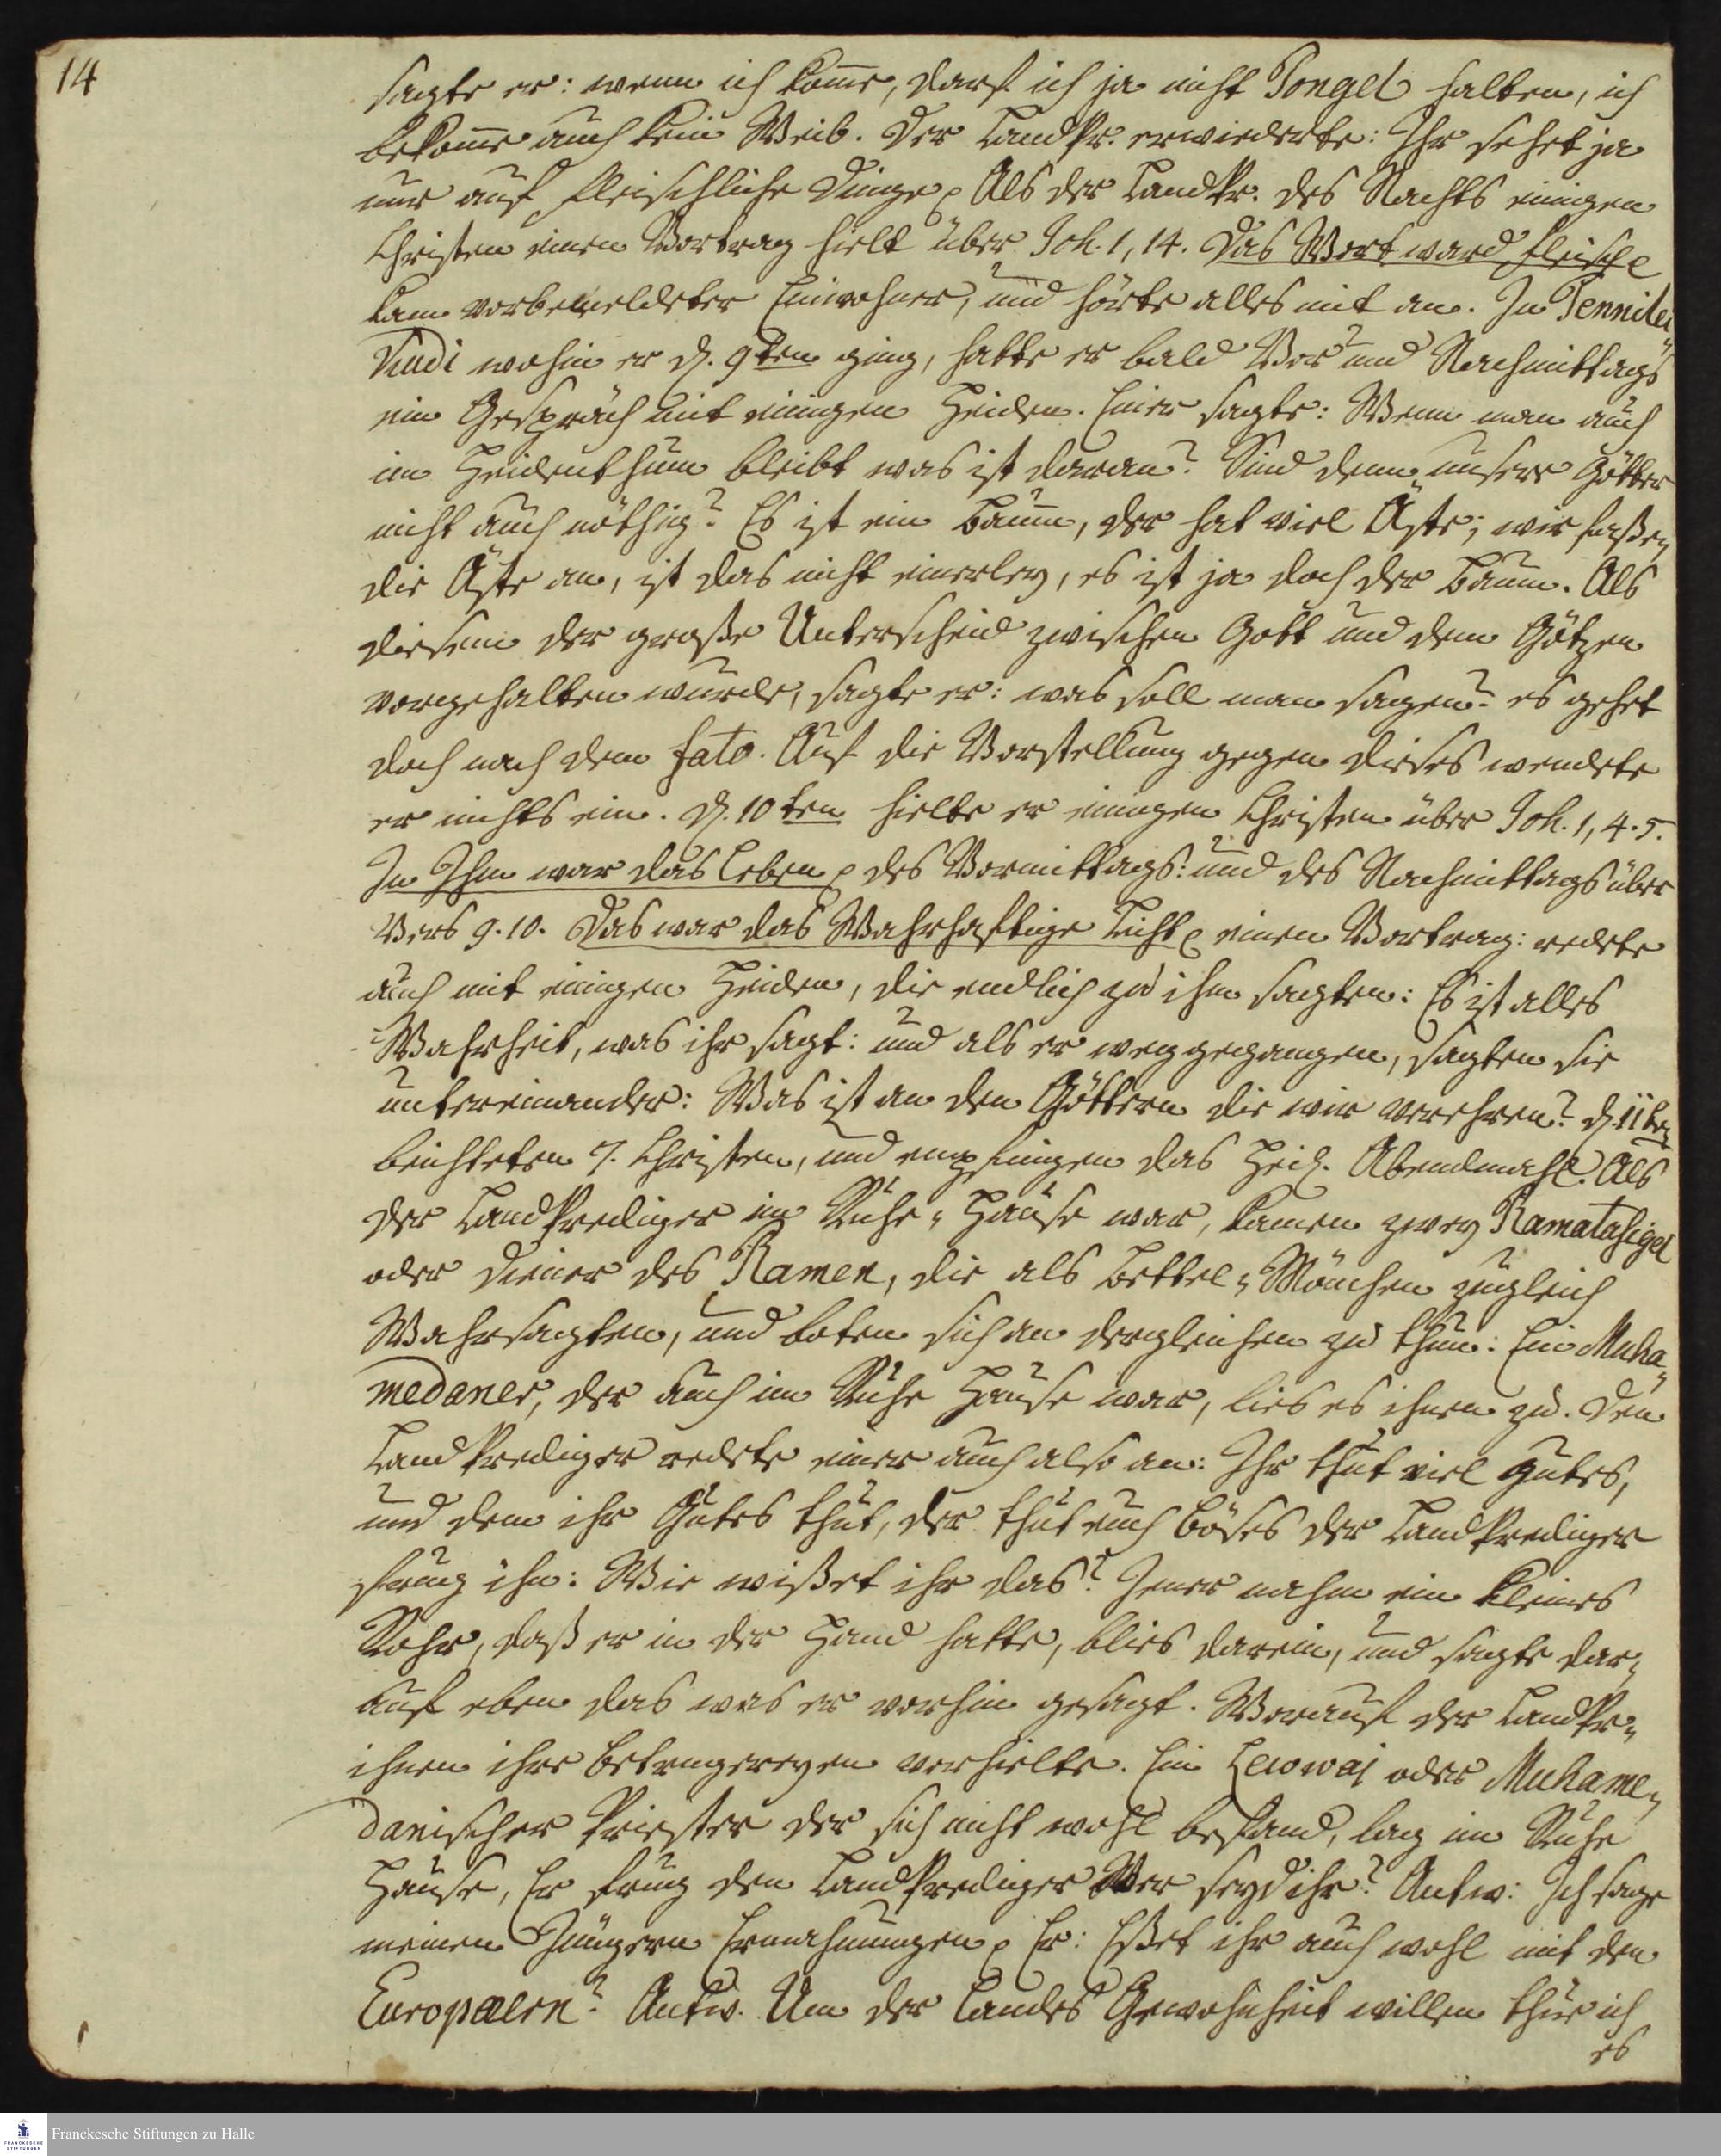 14
sagte er: wenn ich kom̅e, darf ich ja nicht Pongel halten, ich
bekom̅e auch kein Weib. Der LandPr. erwiederte: Ihr sehet ja
nur auf fleischliche Dinge. Als der LandPr. des Nachts einigen
Christen einen Vortrag hielt über Joh. 1, 14. Das Wort ward Fleisch
kam vorbemeldeter Einwohner, und hörte alles mit an. In Tennilei
Kudi wohin er d. 9ten ging, hatte er bald Vor- und Nachmittags
ein Gespräch mit einigen Heiden. Einer sagte: Wenn man auch
im Heidenthum bleibt was ist daran? Sind denn unsere Götter
nicht auch nöthig? Es ist ein Baum, der hat viel Äste; wir faßen
die Äste an, ist das nicht einerley, es ist ja doch der Baum. Als
diesem der große Unterscheid zwischen Gott und dem Götzen
vorgehalten wurde, sagte er: was soll man sagen? es gehet
doch nach dem fato. Auf die Vorstellung gegen dieses wendete
er nichts ein. d. 10ten hielte er einigen Christen über Joh. 1, 4.5.
In Ihm war das Leben des Vormittags: und des Nachmittags über
Vers 9.10. Das war das Wahrhaftige Licht einen Vortrag: redete
auch mit einigen Heiden, die endlich zu ihm sagten: Es ist alles
Wahrheit, was ihr sagt: und als er weggegangen, sagten sie
untereinander: Was ist an den Göttern die wir verehren? d. 11ten
beichteten 7. Christen, und empfingen das Heil. Abendmahl. Als
der LandPrediger im Ruhe-Hause war, kamen zwey Ramatasigel
oder Diener des Ramen, die als Bettel-Mönchen zugleich
Wahrsagten, und boten sich an dergleichen zu thun: Ein Muha-
medaner, der auch im Ruhe Hause war, lies es ihnen zu. Den
LandPrediger redete einer auch also an: Ihr thut viel gutes,
und dem ihr Gutes thut, der thut euch böses der LandPrediger
frung ihn: Wie wißet ihr das? Jener nahm ein kleines
Rohr, daß er in der Hand hatte, blies darein, und sagte dar-
auf eben das was er vorhin gesagt. Worauf der LandPr.
ihnen ihre betrugereyen vorhielte. Ein Lewwai oder Muhame-
danischer Priester der sich nicht wohl befand, lag im Ruhe
Hause, Er frug den LandPrediger Wer seyd ihr? Antw: Ich sage
meinen Jüngern Ermahnungen Er: Eßet ihr auch wohl mit den
Europaeern? Antw. Um der Landes Gewohnheit willen thue ich
es
Franckesche Stiftungen zu Halle
FRANCKESCHE
STIFTUNGEN